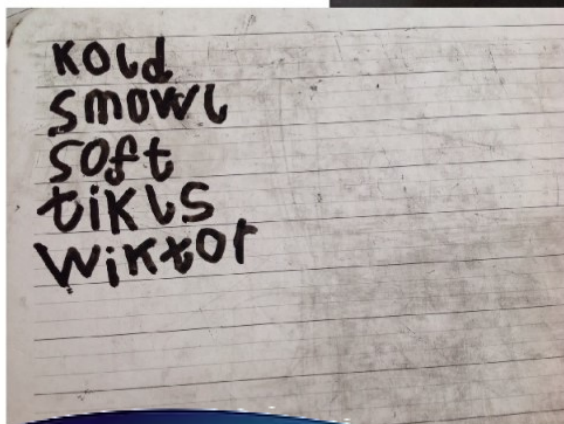 Kold
smowl
soft
tikls
Wiktor